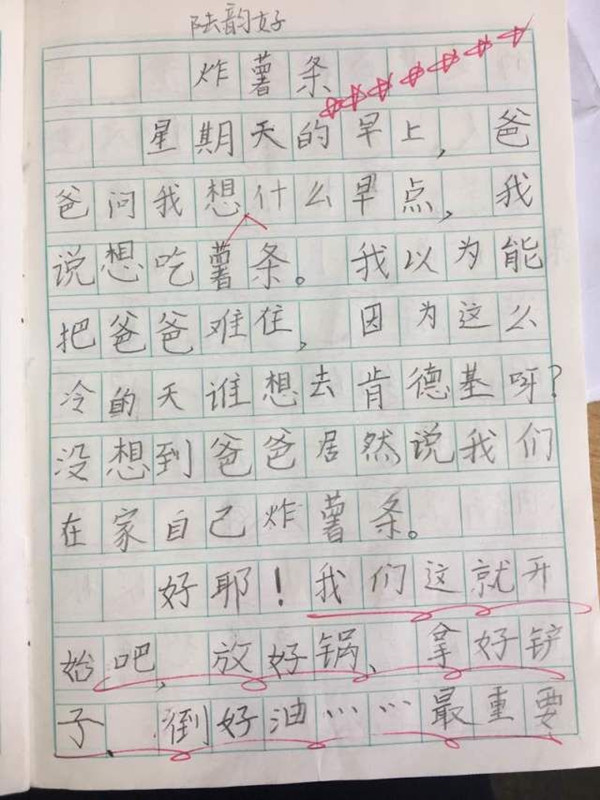 陆韵好
炸薯条
星期天的早上，爸
爸问我想什么早点，我
说想吃薯条。我以为能
把爸爸难住，因为这么
冷的天谁想去肯德基呀？
没想到爸爸居然说我们
在家自己炸薯条。
好耶！我们这就开
始吧，放好锅、拿好铲
子、倒好油……最重要